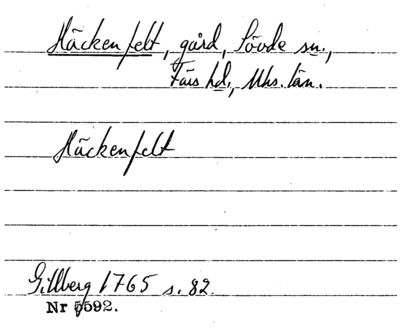 Häckenfelt, gård, Sövde sn.,
Färs hd., Mhs. län.
Häckenfelt
Gillberg 1765 s. 82.
Nr 5592.